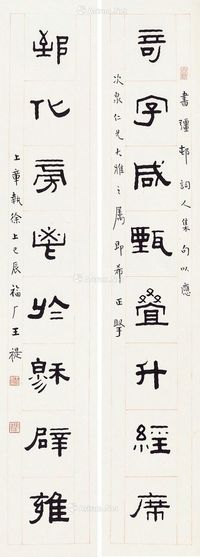 書彊邨詞人集句以應
奇字咸甄叠升經席
次泉仁兄大雅之屬即希正
郅化旁鬯於穆辟雍
上章執徐上巳辰福厂王禔